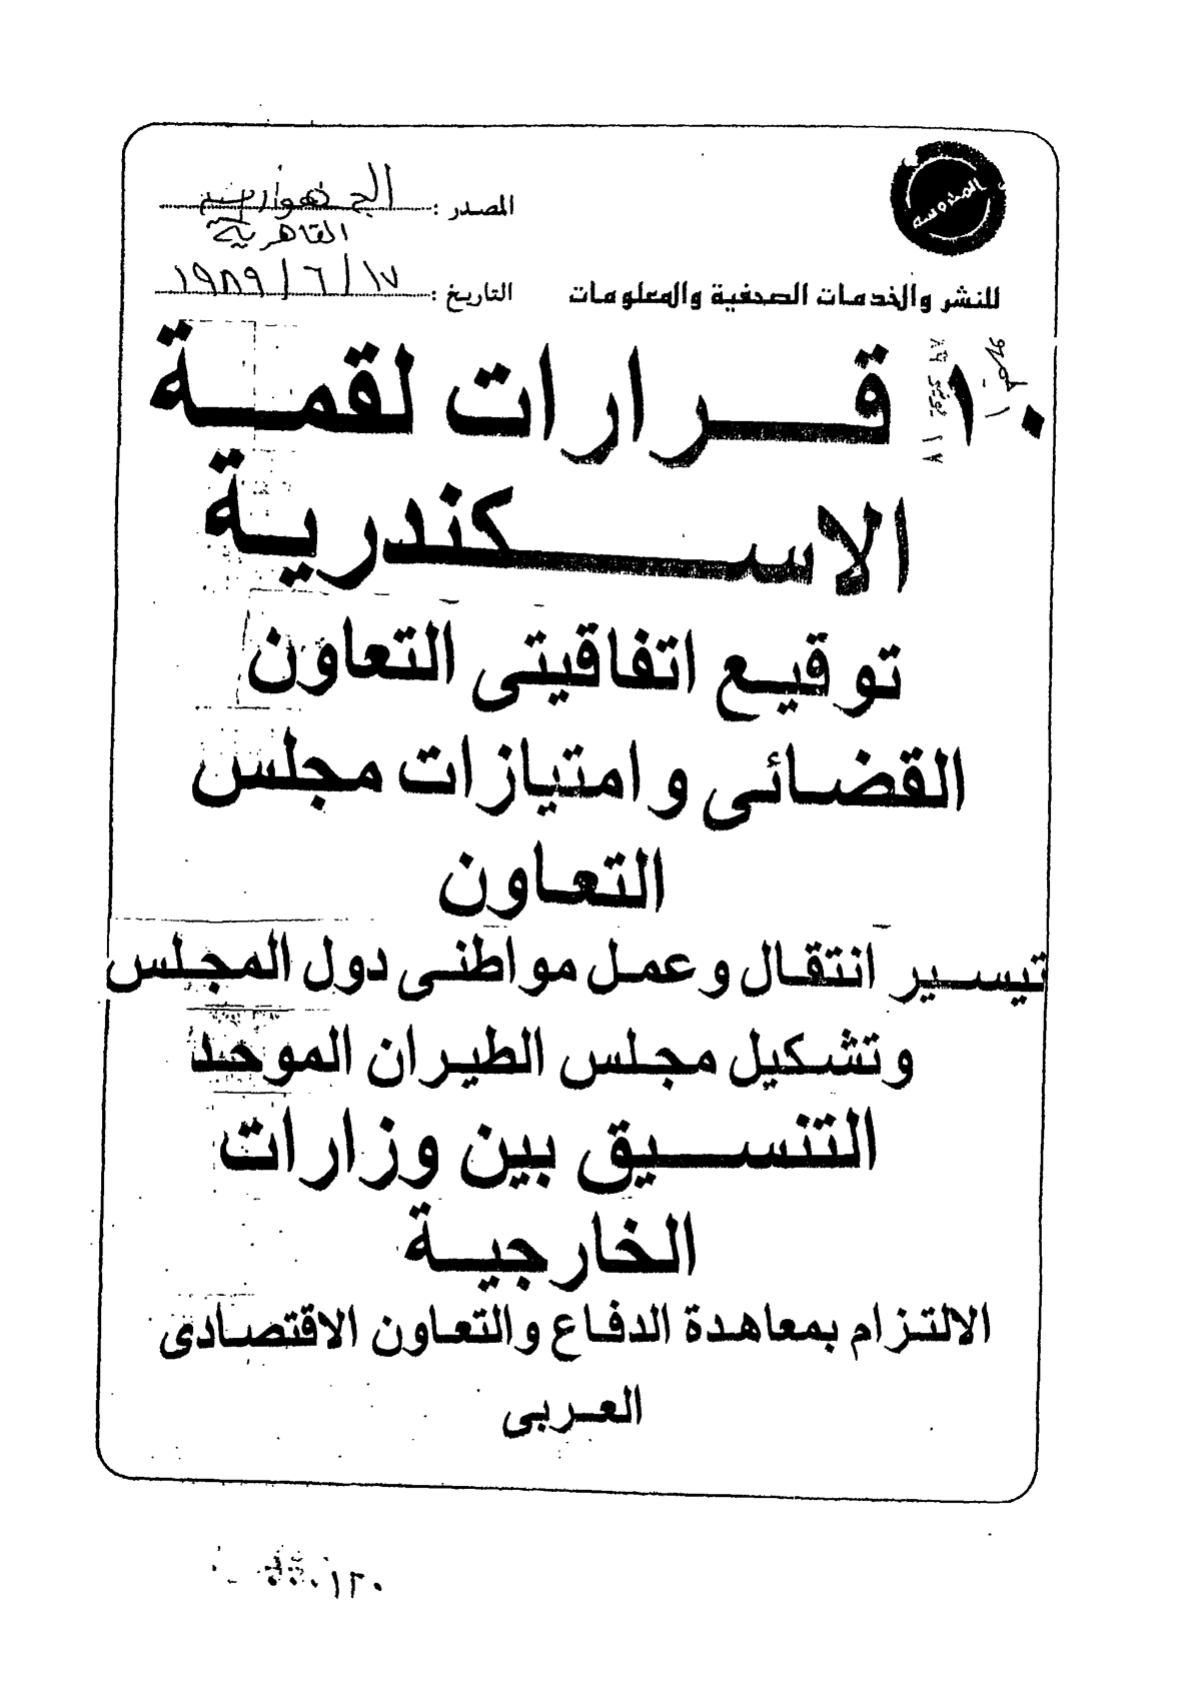 المصدر : الجمهورية
القاهرية
التاريخ : ١٧ / ٦ / ١٩٨٩
المحروسة
للنشر والخدمات الصحفية والمعلومات
١٠ قـــرارات لقمـــة
الاســـكندريـة
توقيـع اتفاقيتى التعاون
القضـائى وامتيازات مجلس
التعـاون
تيسـير انتقـال وعمـل مواطنـى دول المجـلس
وتشـكيل مجـلس الطيـران الموحـد
التنســـيق بين وزارات
الخارجيـــة
الالتـزام بمعاهـدة الدفـاع والتعـاون الاقتصـادى
العـربى